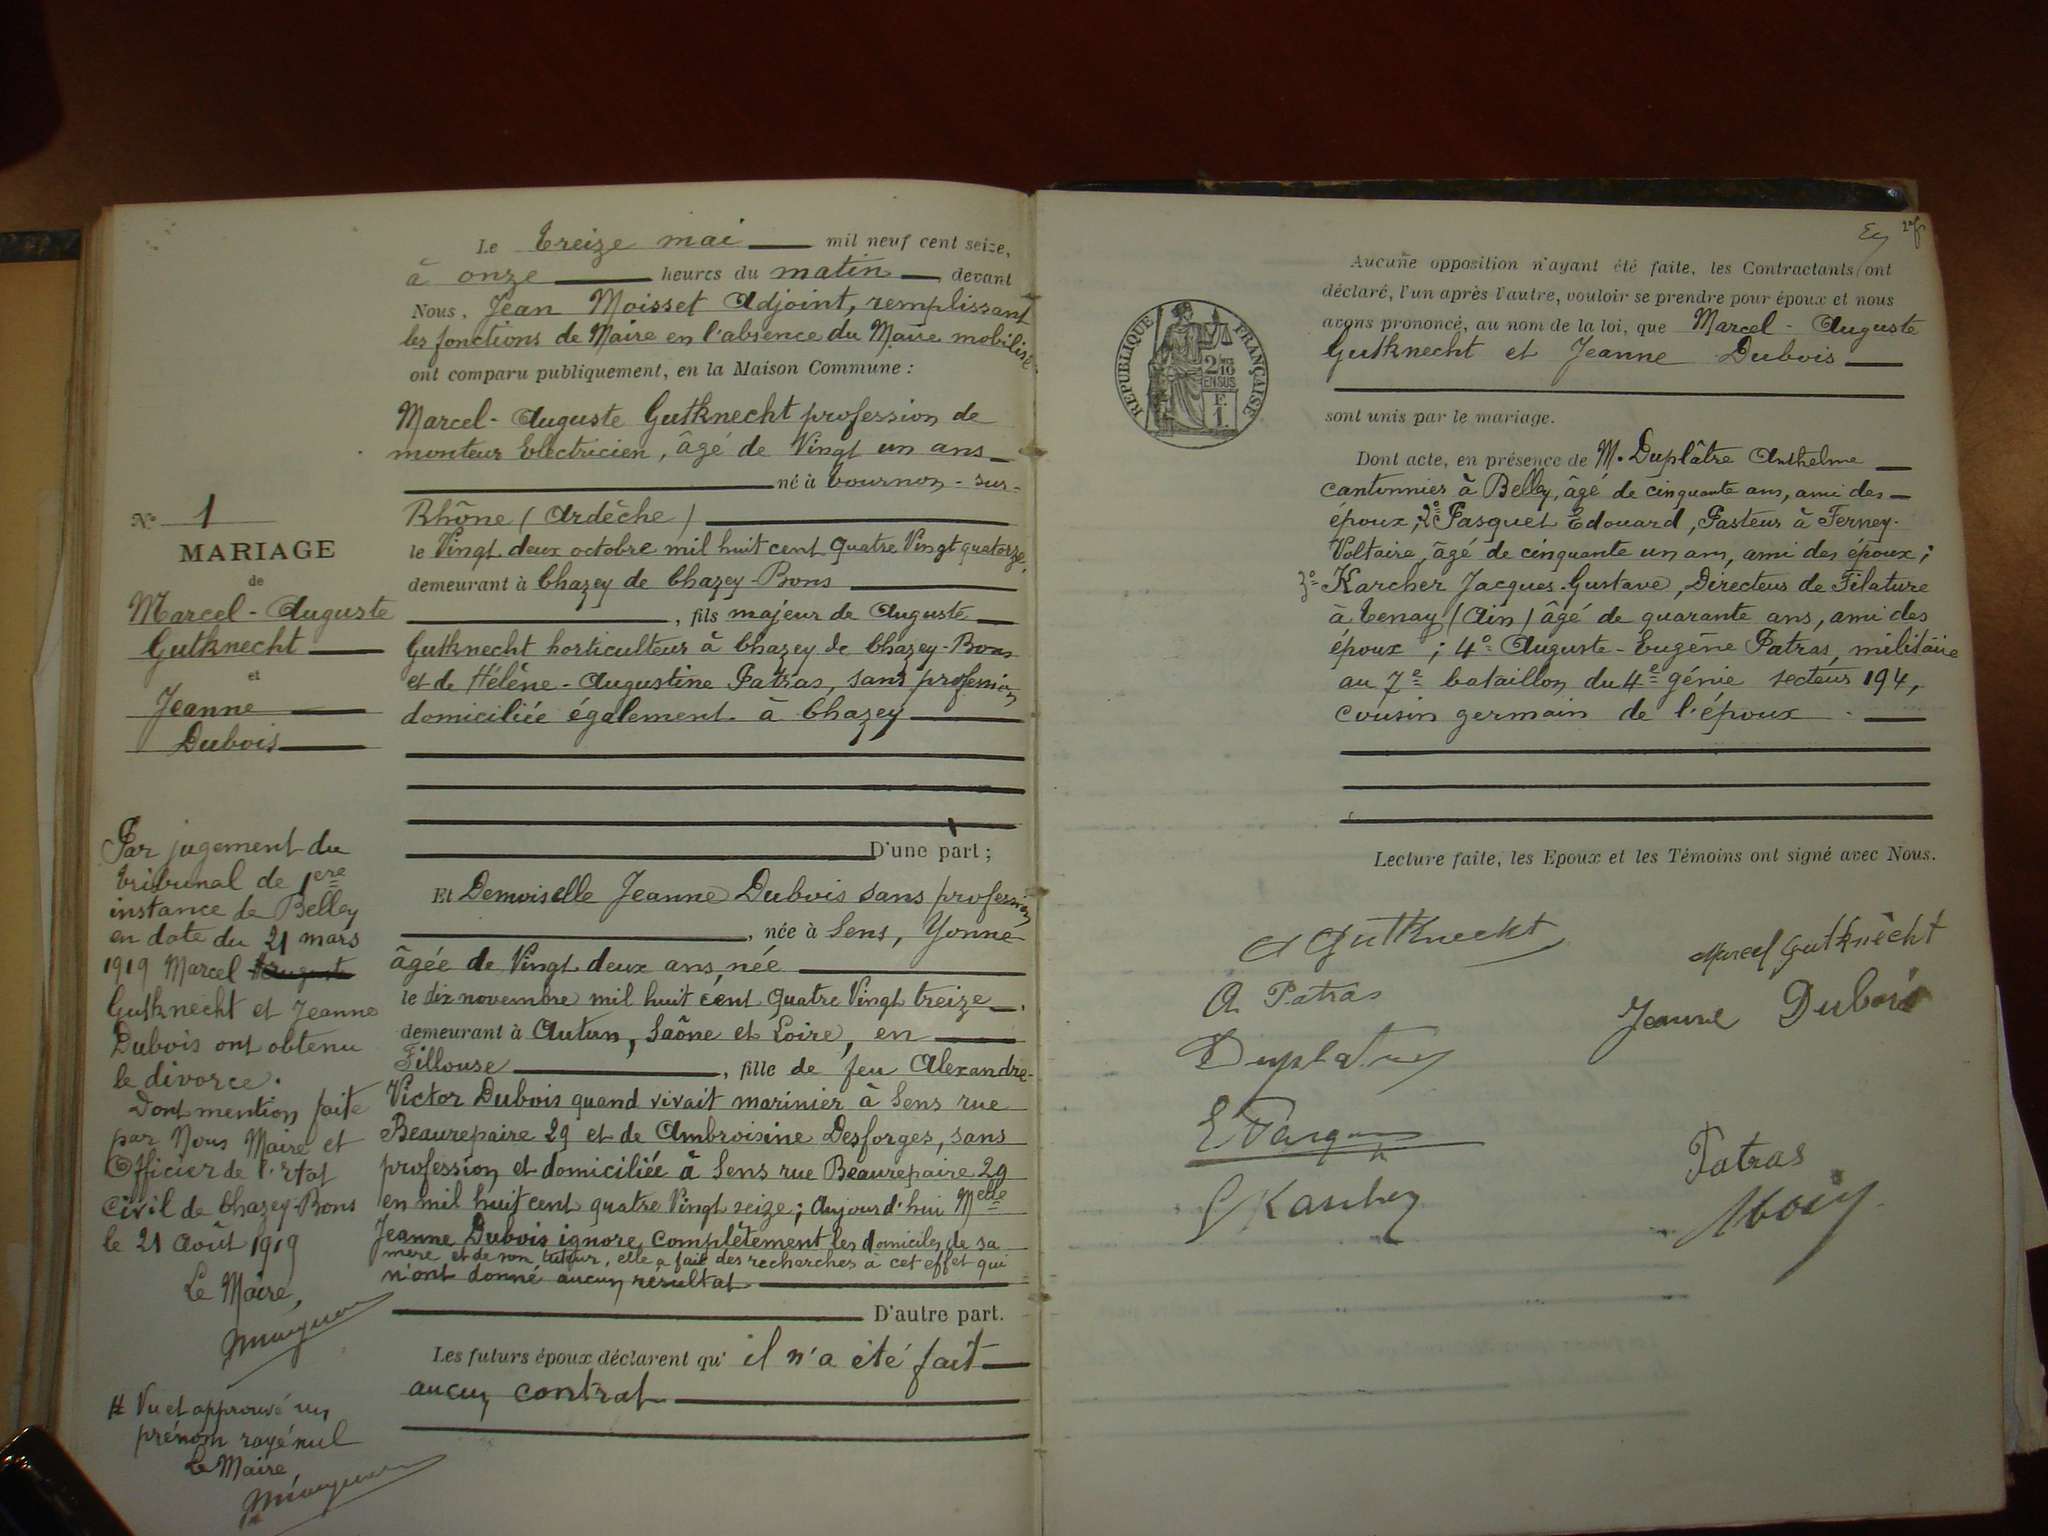 Le treize mai mil neuf cent seize,
à onze heures du matin, devant
Nous, Jean Moisset Adjoint, remplissant
les fonctions de Maire en l'absence du Maire mobilisé
ont comparu publiquement, en la Maison Commune :
Marcel-Auguste Gutknecht profession de
monteur Electricien, âgé de Vingt un ans
né à tournon-sur-
Rhône (Ardèche)
le Vingt deux octobre mil huit cent quatre Vingt quatorze,
demeurant à Chazey de Chazey-Bons
, fils majeur de Auguste
Gutknecht horticulteur à Chazey de Chazey-Bons
et de Hélène-Augustine Patras, sans profession
domiciliée également à Chazey
D'une part ;
Et Demoiselle Jeanne Dubois sans profession
, née à Sens, Yonne
âgée de Vingt deux ans née
le dix novembre mil huit cent quatre Vingt treize,
demeurant à Autun, Saône et Loire, en
Fillouse, fille de feu Alexandre-
Victor Dubois quand vivait marinier à Sens rue
Beaurepaire 29 et de Ambroisine Desforges, sans
profession et domiciliée à Sens rue Beaurepaire 29
en mil huit cent quatre Vingt seize ; aujourd'hui Melle
Jeanne Dubois ignore complètement les domiciles de sa
mère et de son tuteur, elle a fait des recherches à cet effet qui
n'ont donné aucun résultat
D'autre part.
Les futurs époux déclarent qu' il n'a été fait
aucun contrat
No 1
MARIAGE
de
Marcel-Auguste
Gutknecht
et
Jeanne
Dubois
Par jugement du
tribunal de 1ere
instance de Belley
en date du 21 mars
1919 Marcel Auguste
Gutknecht et Jeanne
Dubois ont obtenu
le divorce.
Dont mention faite
par Nous Maire et
Officier de l'Etat
Civil de Chazey-Bons
le 21 Août 1919
Le Maire,
# Vu et approuvé un
prénom rayé nul
Le Maire,
RÉPUBLIQUE FRANÇAISE
2/10 EN SUS
1 F.
Aucune opposition n'ayant été faite, les Contractants ont
déclaré, l'un après l'autre, vouloir se prendre pour époux et nous
avons prononcé, au nom de la loi, que Marcel-Auguste
Gutknecht et Jeanne Dubois
sont unis par le mariage.
Dont acte, en présence de M. Duplâtre Anthelme
cantonnier à Belley, âgé de cinquante ans, ami des
époux ; 2o Pasquet Edouard, Pasteur à Ferney-
Voltaire, âgé de cinquante un ans, ami des époux ;
3o Karcher Jacques-Gustave, Directeur de Filature
à Tenay (Ain) âgé de quarante ans, ami des
époux ; 4o Auguste-Eugène Patras, militaire
au 7e bataillon du 4e génie secteur 194,
cousin germain de l'époux.
Lecture faite, les Epoux et les Témoins ont signé avec Nous.
A Gutknecht
Marcel Gutknecht
A Patras
Jeanne Dubois
Duplatre
Patras